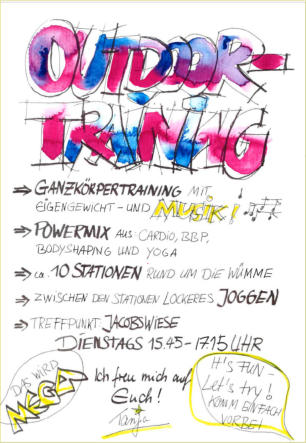 OUTDOOR-
TRAINING
⇒ GANZKÖRPERTRAINING MIT
EIGENGEWICHT-UND MUSIK!
⇒ POWERMIX AUS: CARDIO, BBP,
BODYSHAPING UND YOGA
⇒ ca. 10 STATIONEN RUND UM DIE WÜMME
⇒ ZWISCHEN DEN STATIONEN LOCKERES JOGGEN
⇒ TREFFPUNKT JACOBSWIESE
DIENSTAGS 15.45-17.15 UHR
DAS WIRD
MEGA
Ich freu mich auf
Euch!
Tanja
It's FUN-
Let's try!
KOMM EINFACH
VORBEI